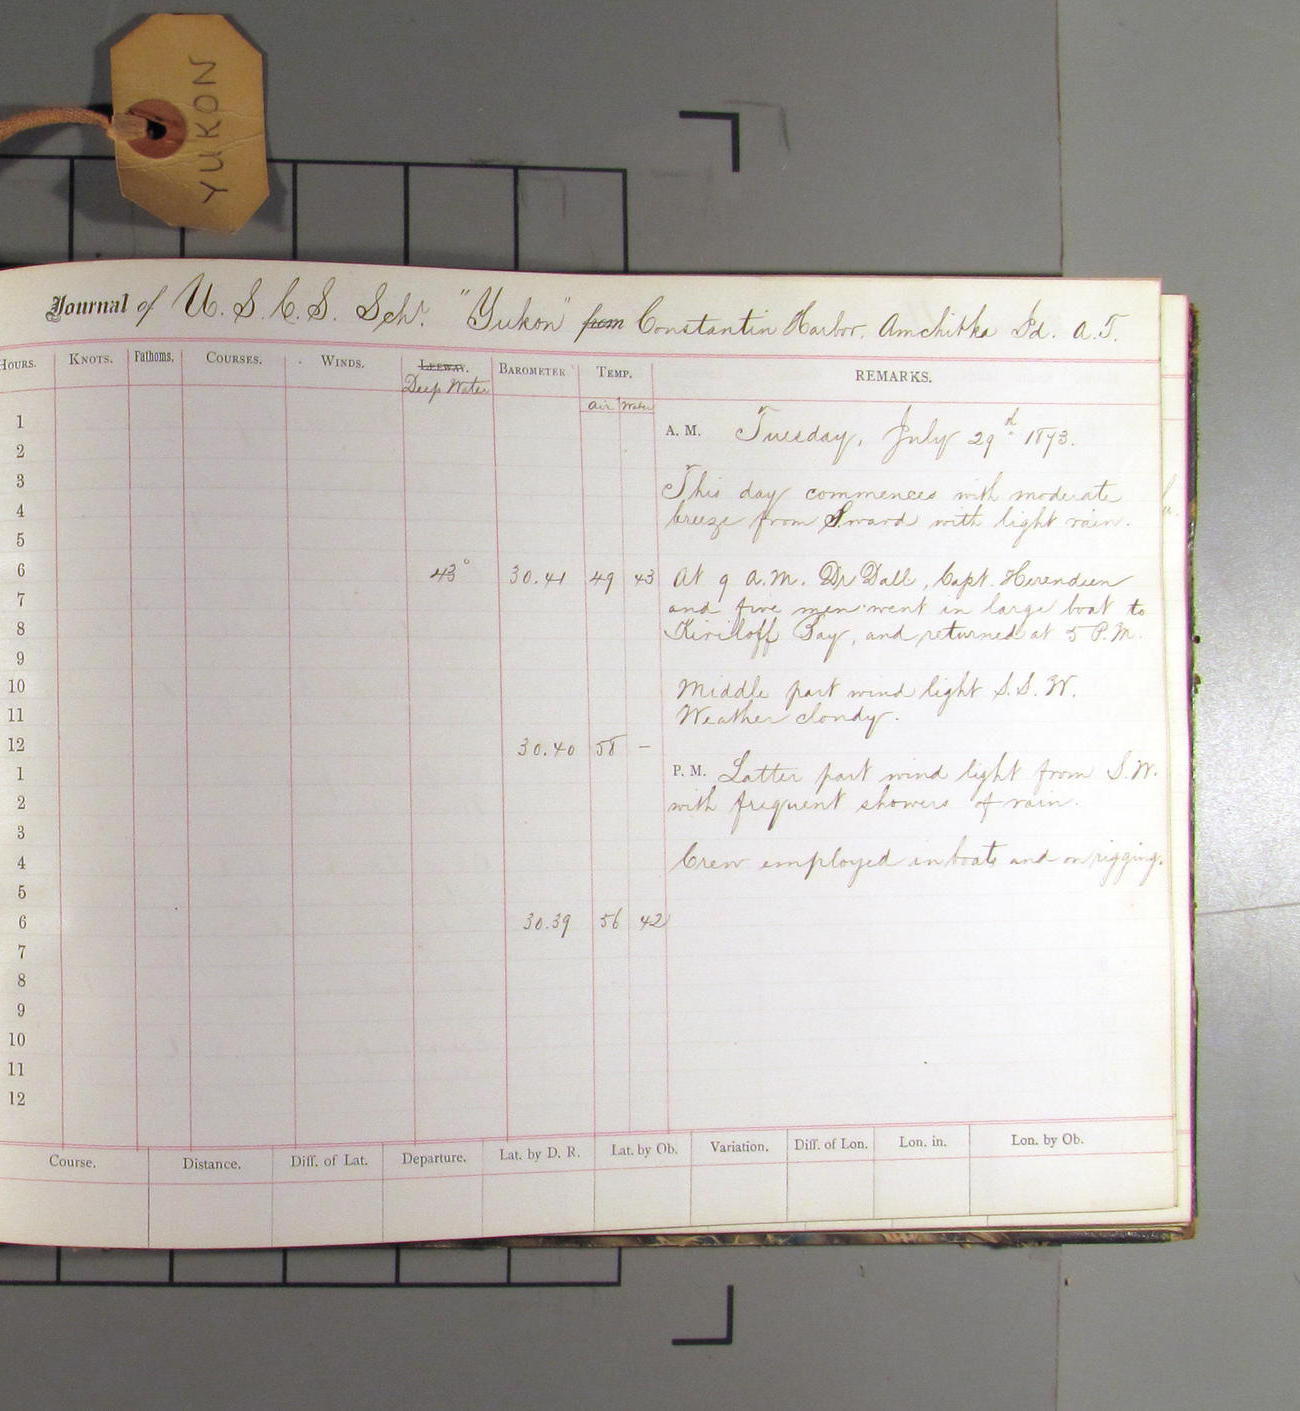 YUKON
Journal of U. S. C. S. Schr. "Yukon" from Constantin Harbor. Amchitka Id. A.T.
Hours. Knots. Fathoms. Courses. Winds. Leeway. Barometer Temp. REMARKS.
Deep Water
Air Water
1 A. M. Tuesday, July 29d 1873.
2
3 This day commences with moderate
4 breeze from Sward with light rain.
5
6 43° 30.41 49 43 At 9 a.m. Dr Dall, Capt. Herendeen
7 and five men went in large boat to
8 Kiriloff Bay, and returned at 5 P.M.
9
10 Middle part wind light S.S.W.
11 Weather cloudy.
12 30.40 58 –
1 P. M. Latter part wind light from S.W.
2 with frequent showers of rain.
3
4 Crew employed in boats and on rigging.
5
6 30.39 56 42
7
8
9
10
11
12
Course. Distance. Diff. of Lat. Departure. Lat. by D. R. Lat. by Ob. Variation. Diff. of Lon. Lon. in. Lon. by Ob.